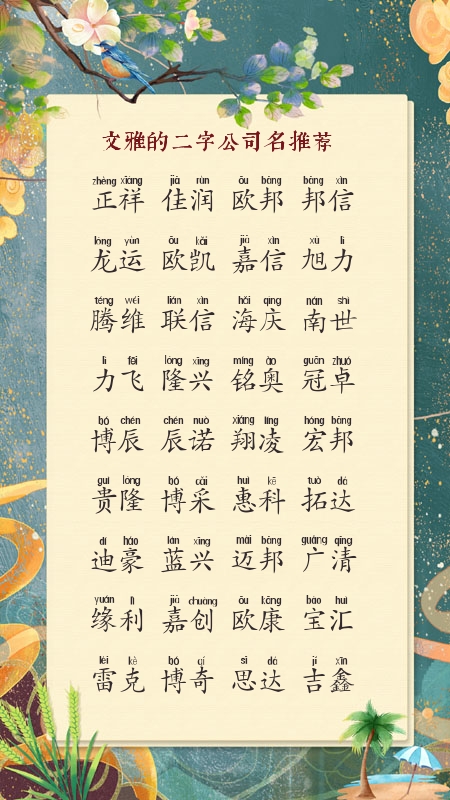 文雅的二字公司名推荐
zhèng xiáng jiā rùn ōu bāng bāng xìn
正祥 佳润 欧邦 邦信
lóng yùn ōu kǎi jiā xìn xù lì
龙运 欧凯 嘉信 旭力
téng wéi lián xìn hǎi qìng nán shì
腾维 联信 海庆 南世
lì fēi lóng xīng míng ào guān zhuó
力飞 隆兴 铭奥 冠卓
bó chén chén nuò xiáng líng hóng bāng
博辰 辰诺 翔凌 宏邦
guì lóng bó cǎi huì kē tuò dá
贵隆 博采 惠科 拓达
dí háo lán xīng mài bāng guǎng qīng
迪豪 蓝兴 迈邦 广清
yuán lì jiā chuàng ōu kāng bǎo huì
缘利 嘉创 欧康 宝汇
léi kè bó qí sī dá jí xīn
雷克 博奇 思达 吉鑫